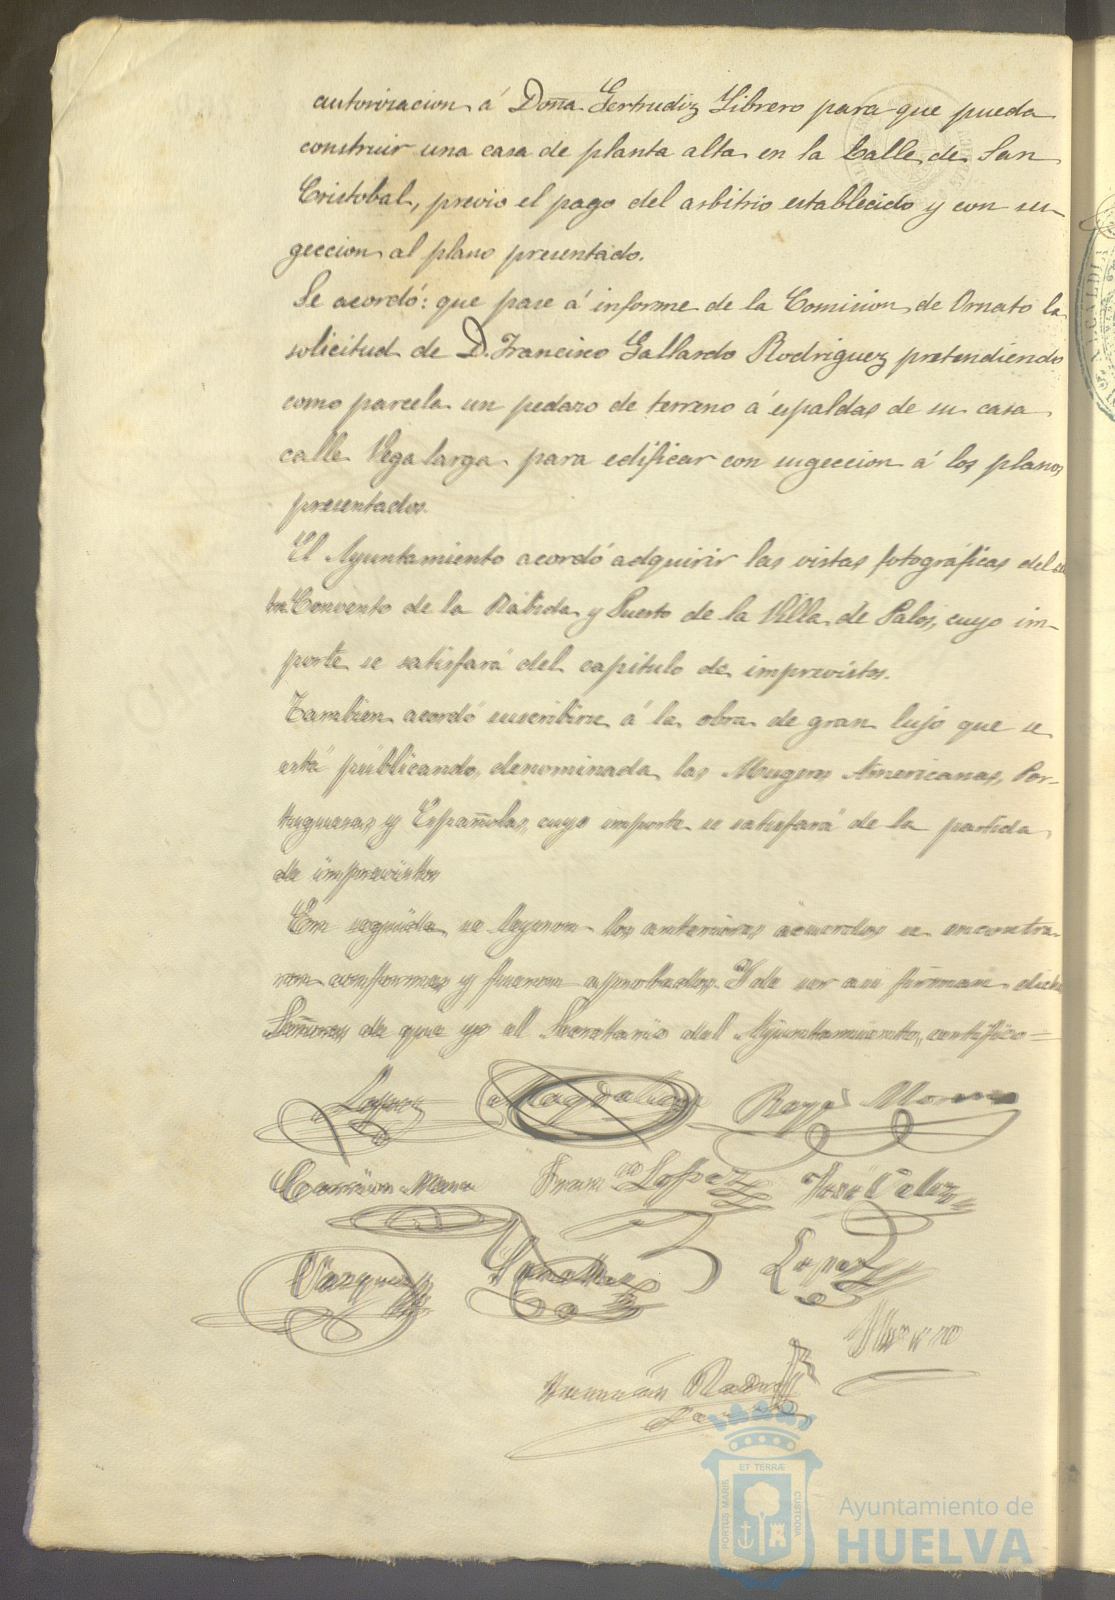 autorizacion á Doña Gertrudiz Librero para que pueda
construir una casa de planta alta en la Calle de San
Cristobal, previo el pago del arbitrio establecido y con su-
geccion al plano presentado.
Se acordó: que pase á informe de la Comision de Ornato la
solicitud de D. Francisco Gallardo Rodriguez pretendiendo
como parcela un pedazo de terreno á espaldas de su casa
calle Vega larga para edificar con sugeccion á los planos
presentados.
El Ayuntamiento acordó adquirir las vistas fotográficas del
Convento de la Rábida y Puerto de la Villa de Palos, cuyo im-
porte se satisfará del capitulo de imprevistos.
Tambien acordó suscribirse á la obra de gran lujo que se
está publicando, denominada las Mugeres Americanas, Por-
tuguesas y Españolas, cuyo importe se satisfará de la partida
de imprevistos
En seguida se leyeron los anteriores acuerdos se encontra-
ron conformes y fueron aprobados. Y de ser asi firman dichos
Señores de que yo el Secretario del Ayuntamiento, certifico=
Lopez Rey Moreno
Lopez José Celez
Vazquez Lopez
Moreno
PORTUS MARIS ET TERRÆ CUSTODIA
Ayuntamiento de
HUELVA